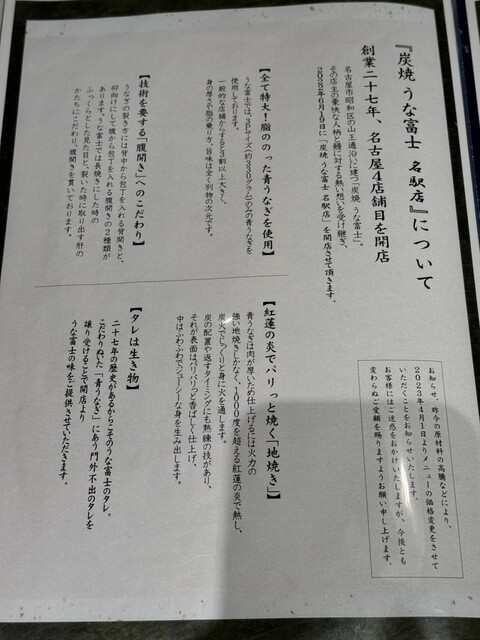 『炭焼 うな富士 名駅店』について
創業二十七年、名古屋4店舗目を開店
名古屋市昭和区の山王通沿いに建つ「炭焼 うな富士」。
その店主の豪快な人柄と鰻に対する熱い想いを受け継ぎ、
2022年6月10日に「炭焼 うな富士 名駅店」を開店させて頂きます。
【全て特大！脂のった青うなぎを使用】
うな富士では、3Pサイズ(約330グラム)以上の青うなぎを
使用しております。
一般的な店舗からすると3割以上大きく、
身の厚さや脂の乗り方、旨味は全く別物の次元です。
【技術を要する「腹開き」へのこだわり】
うなぎの裂き方には背中から包丁を入れる背開きと、
仰向けにして腹から包丁を入れる腹開きの2種類が
あります。うな富士では長焼きにした時の
ふっくらとした見た目と、裂いた時に取り出す肝の
かたちにこだわり、腹開きを貫いております。
お知らせ、昨今の原材料の高騰などにより、
2023年4月1日よりメニューの価格変更をさせて
いただくことをお知らせいたします。
お客様にはご迷惑をおかけいたしますが、今後とも
変わらぬご愛顧を賜りますようお願い申し上げます。
【紅蓮の炎でパリっと焼く「地焼き」】
青うなぎは肉が厚いため仕上げるには火力の
強い地焼きしかなく、1000度を超える紅蓮の炎で熱し、
炭火でじっくりと身に火を通します。
炭の配置や返すタイミングにも熟練の技があり、
それが表面はパリパリっと香ばしく仕上げ、
中はふわふわでジューシーな身を生み出します。
【タレは生き物】
二十七年の歴史があるからこそのうな富士のタレ。
こだわりぬいた「青うなぎ」にあう門外不出のタレを
譲り受けることで開店より
うな富士の味をご提供させていただきます。